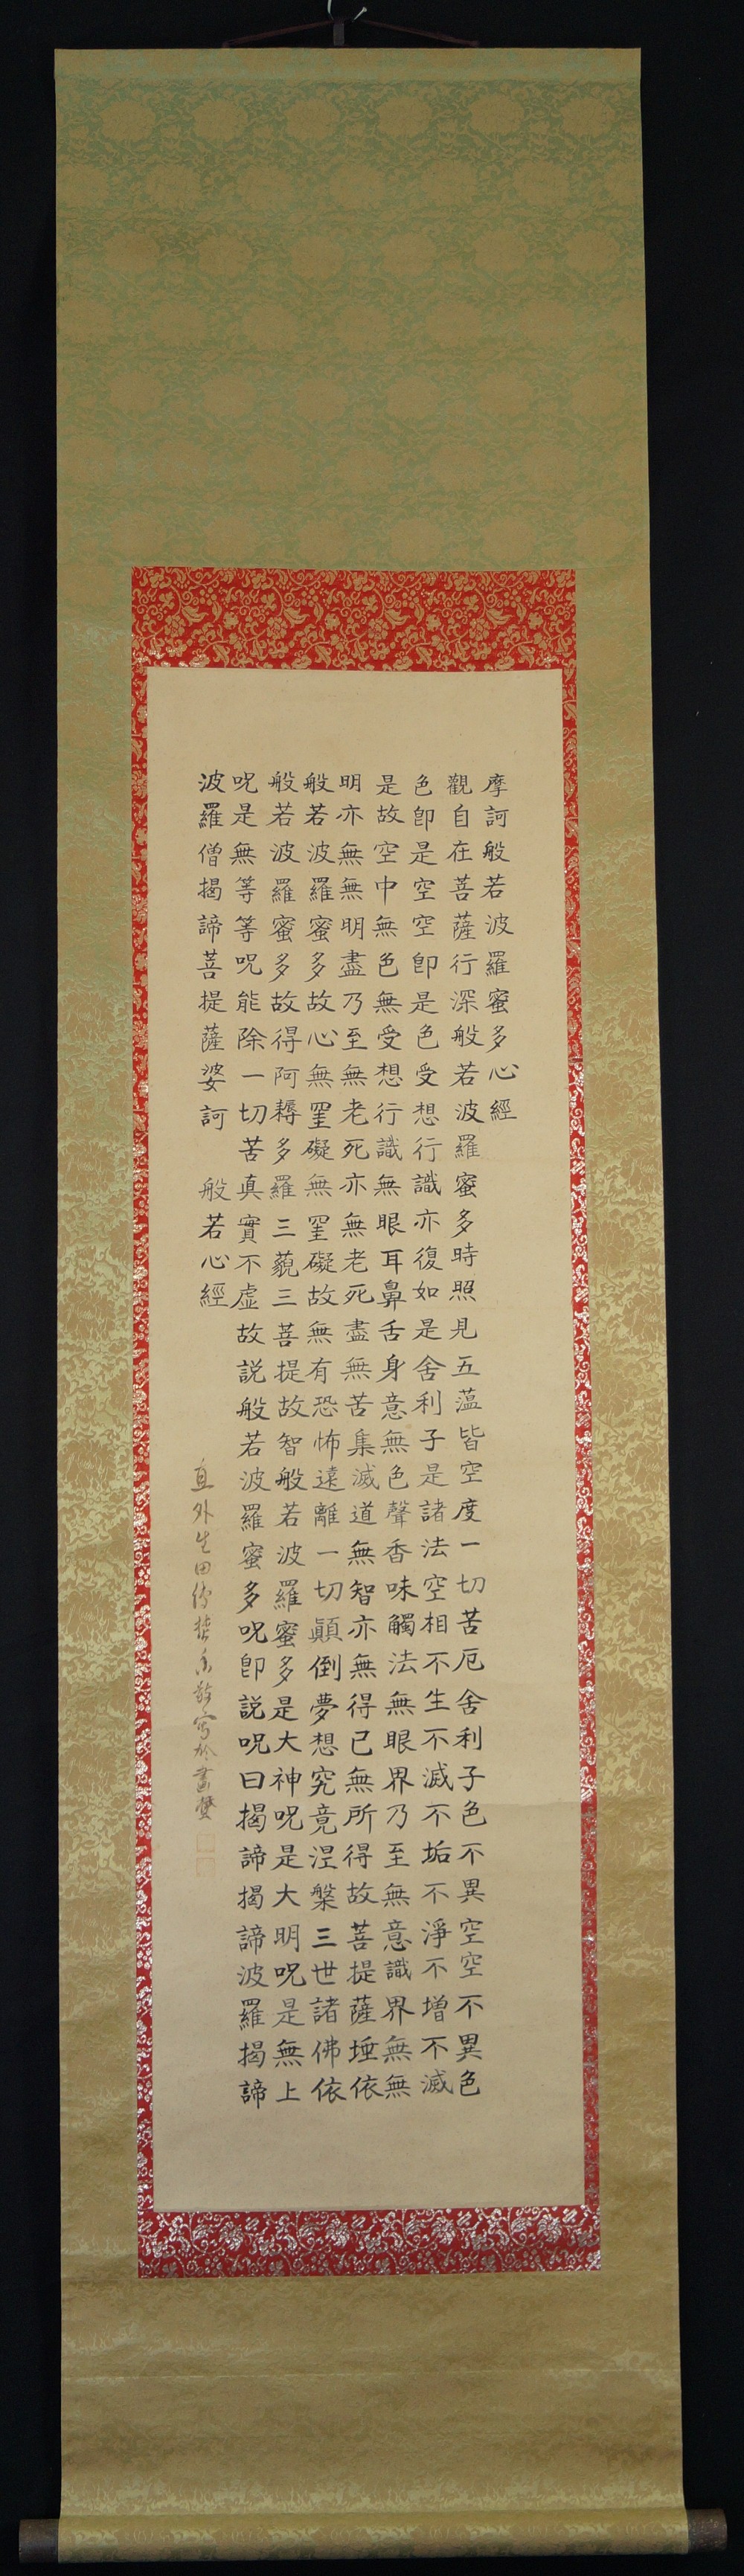 摩訶般若波羅蜜多心經
觀自在菩薩行深般若波羅蜜多時照見五蕰皆空度一切苦厄舍利子色不異空空不異色
色卽是空空卽是色受想行識亦復如是舍利子是諸法空相不生不滅不垢不淨不增不滅
是故空中無色無受想行識無眼耳鼻舌身意無色聲香味觸法無眼界乃至無意識界無無
明亦無無明盡乃至無老死亦無老死盡無苦集滅道無智亦無得已無所得故菩提薩埵依
般若波羅蜜多故心無罣礙無罣礙故無有恐怖遠離一切顚倒夢想究竟涅槃三世諸佛依
般若波羅蜜多故得阿耨多羅三藐三菩提故智般若波羅蜜多是大神呪是大明呪是無上
呪是無等等呪能除一切苦真實不虛故說般若波羅蜜多呪卽說呪曰揭諦揭諦波羅揭諦
波羅僧揭諦菩提薩婆訶 般若心經
直外生田